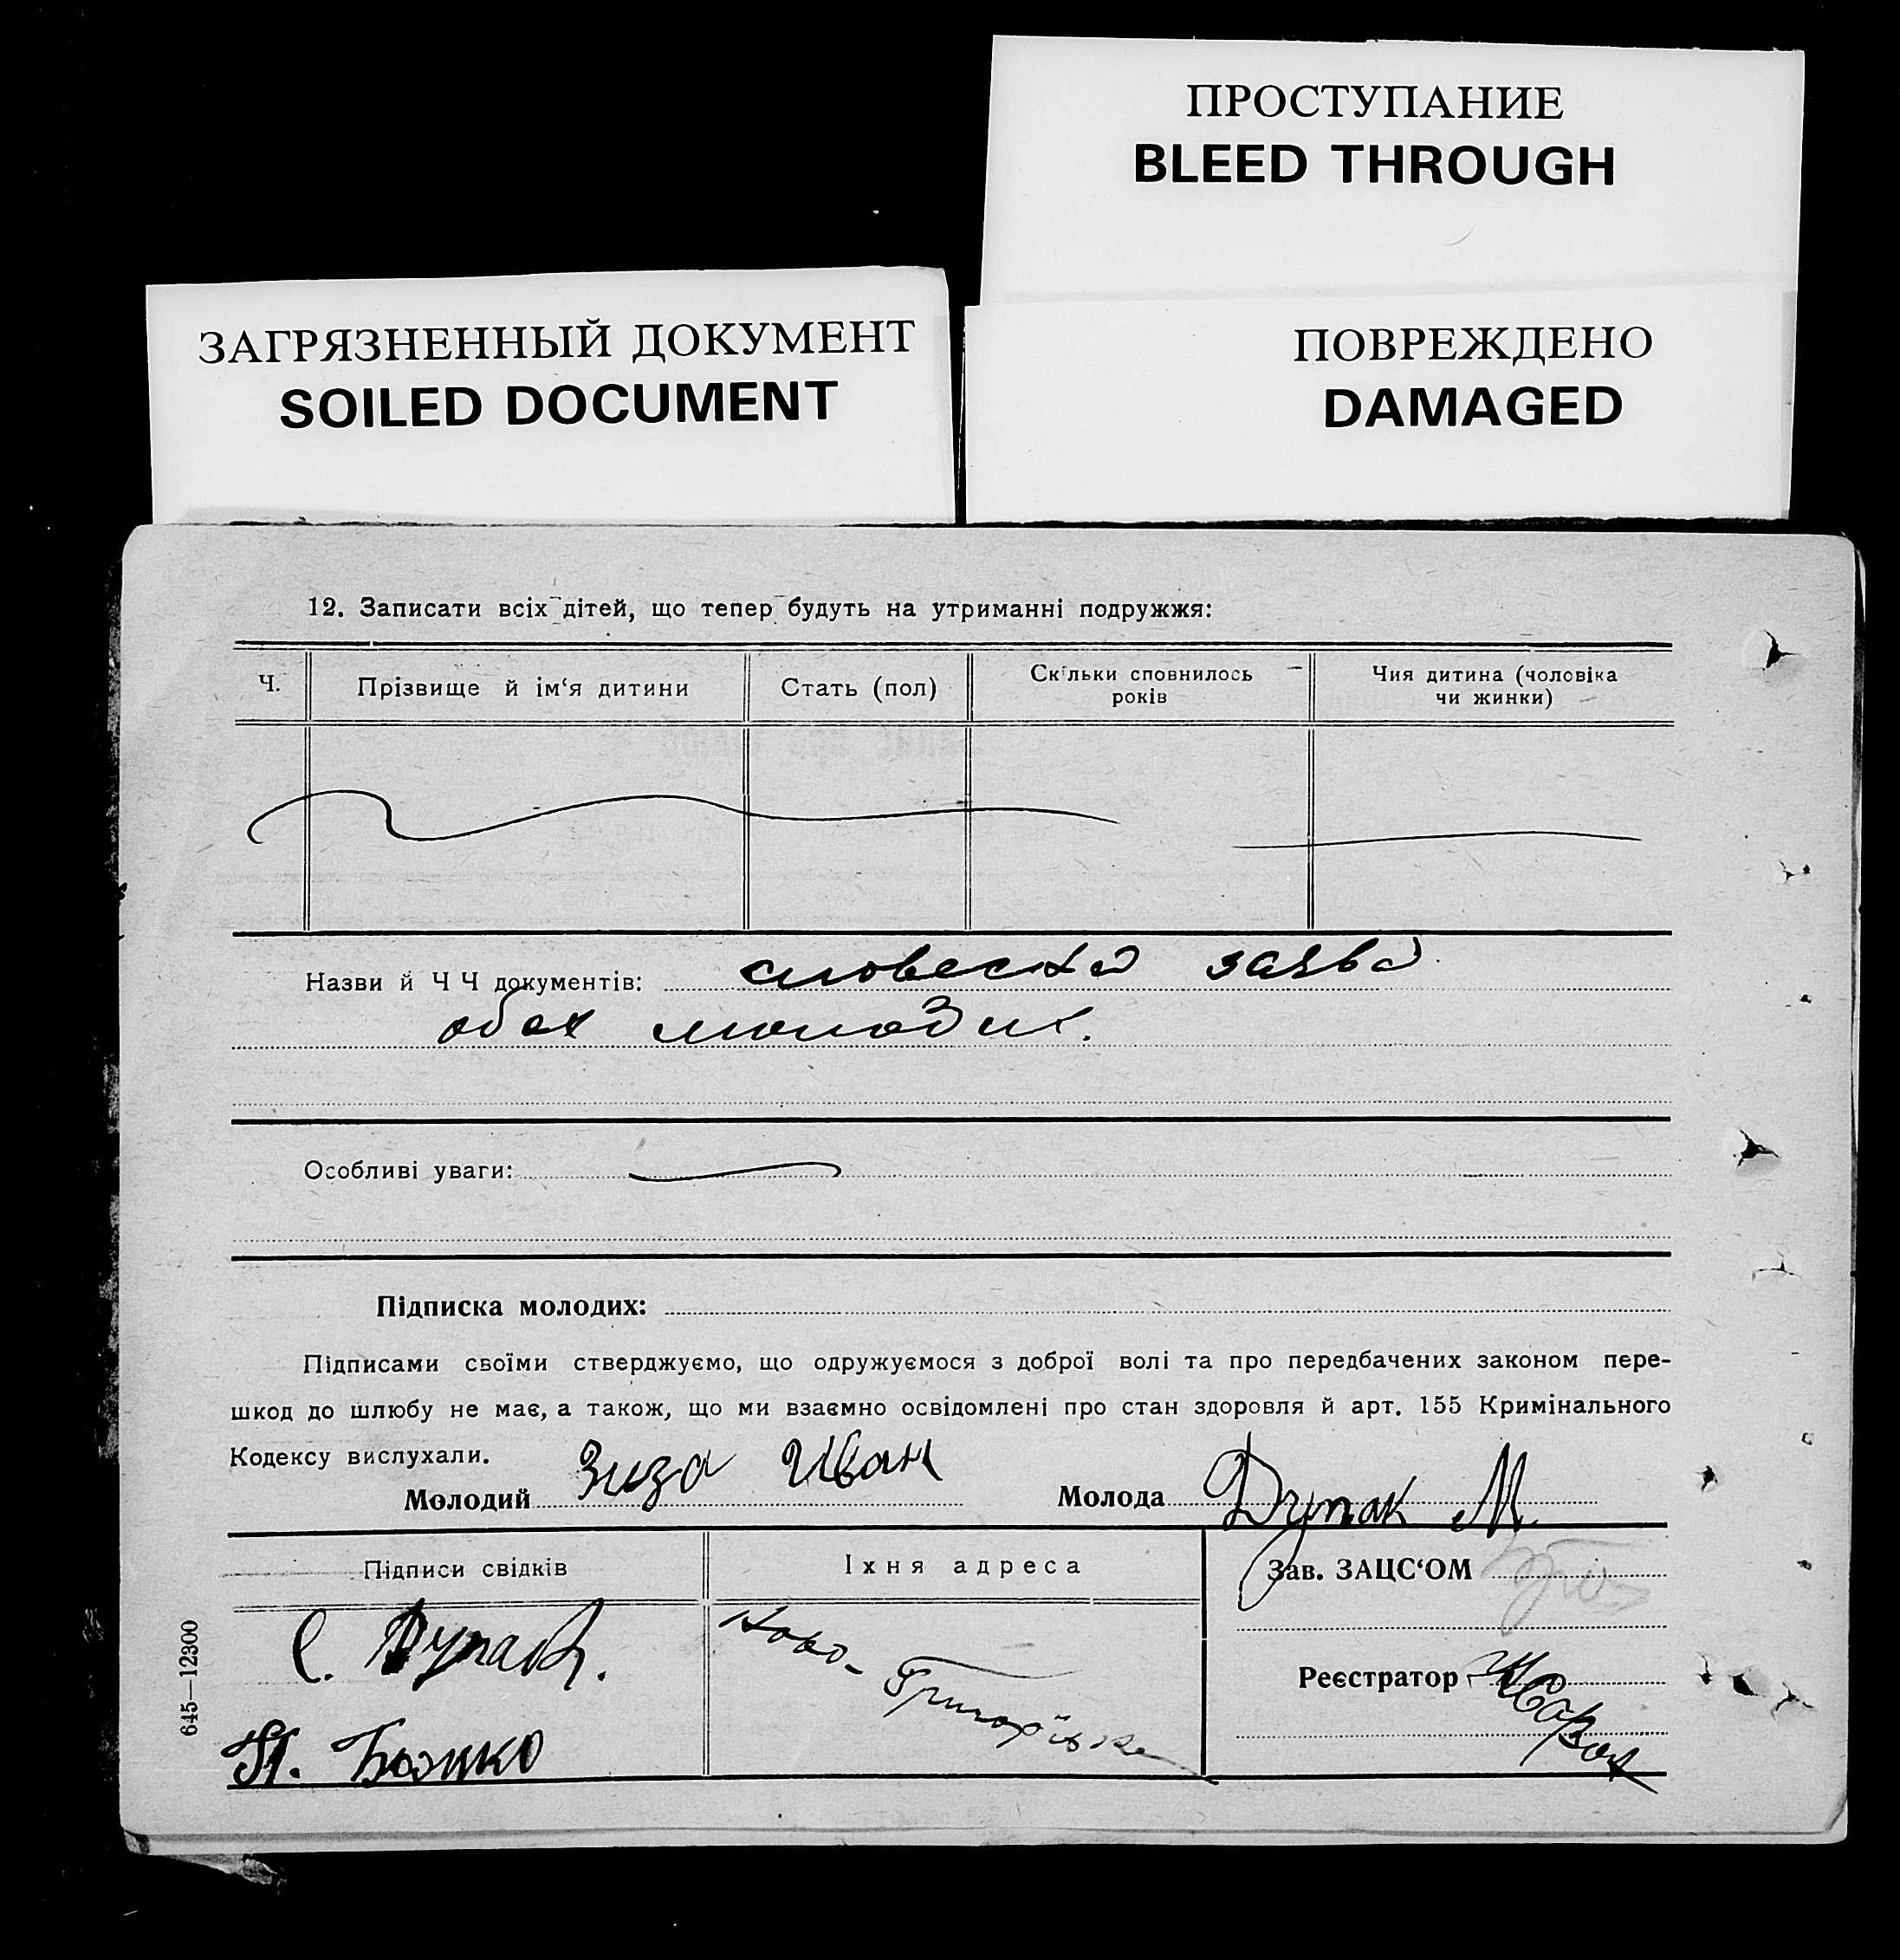 ПРОСТУПАНИЕ
BLEED THROUGH
ЗАГРЯЗНЕННЫЙ ДОКУМЕНТ
SOILED DOCUMENT
ПОВРЕЖДЕНО
DAMAGED
12. Записати всіх дітей, що тепер будуть на утриманні подружжя:
Ч.
Прізвище й ім‘я дитини
Стать (пол)
Скільки сповнилось
років
Чия дитина (чоловіка
чи жинки)
Назви й Ч Ч документів: словесна заява
обох молодих.
Особливі уваги:
Підписка молодих:
Підписами своїми стверджуємо, що одружуємося з доброї волі та про передбачених законом пере-
шкод до шлюбу не має, а також, що ми взаємно освідомлені про стан здоровля й арт. 155 Кримінального
Кодексу вислухали.
Молодий Зиза Иван
Молода Дупак М.
Підписи свідків
Їхня адреса
Зав. ЗАЦС‘ОМ
С. Дупак.
Ново-
Григорівка
Реєстратор
Божко
645—12300